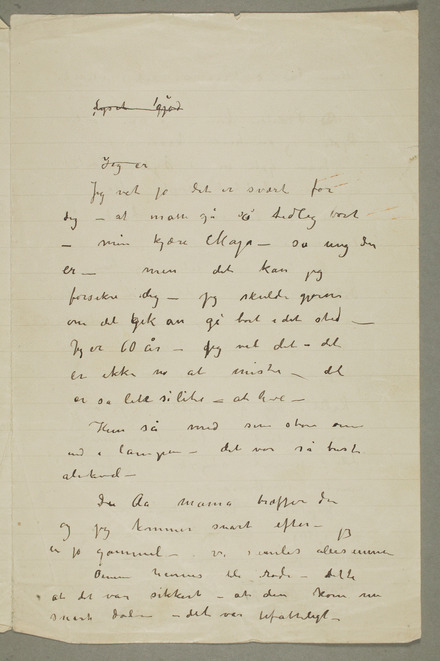 Jeg er
Jeg vet jo det er svært for
dig – at matte gå så tidleg bort
– min kjære Maja – so ung du
er – men det kan jeg
forsikre dig – jeg skulde gjerne
om det gik an gå bort i det sted –
Jeg er 60 år – jeg vet det – det
er ikke no at miste – det
er so lite – at leve –
Hun så med sine store
ind i lampen – det var så
Du Aa mama træffer du
og jeg kommer snart efter – jeg
er jo gammel – vi samles allesammen
hennes – dette
at det var sikkert – at den kom nu
snart døden – det var ufatteligt –